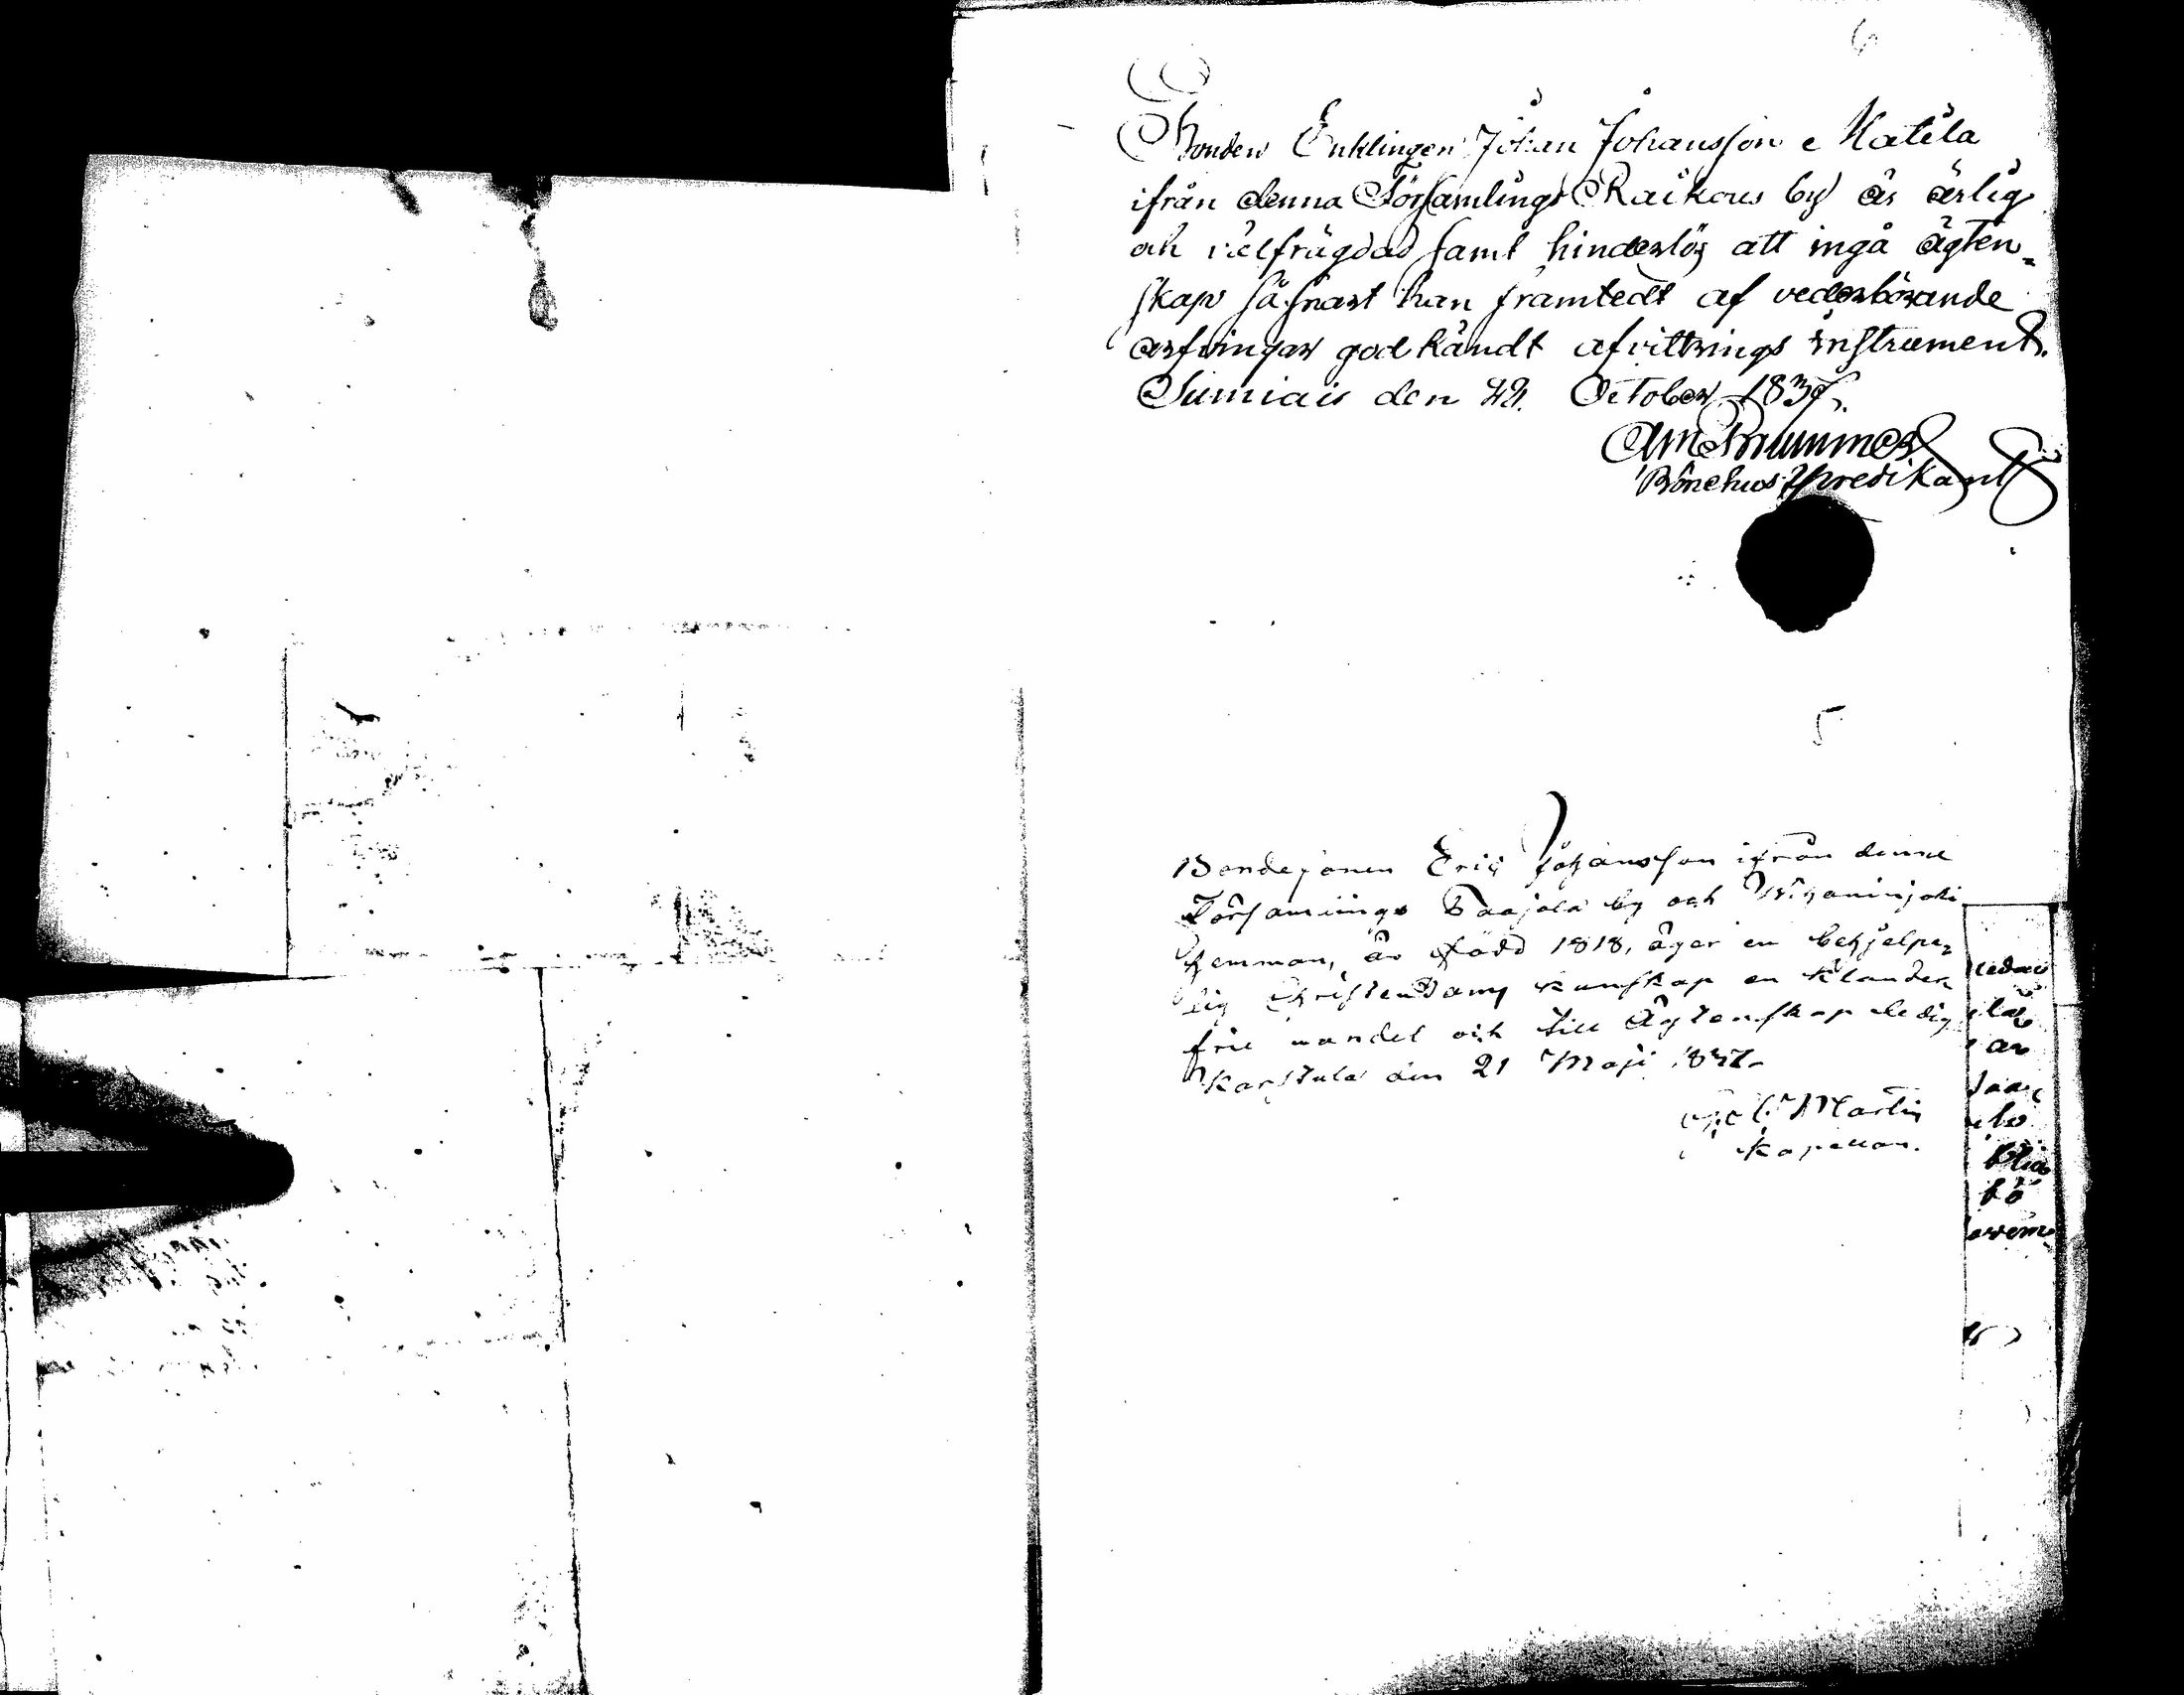 6
Bonden Enklingen Johan Johansson Matila
ifrån denna Församlings Raikous by är ärlig
och välfrägdad samt hinderlös att ingå ägten=
skap så snart han framtedt af vederbörande
arfvingar godkändt afvittrings instrument.
Sumiais den October 1837.
Brummer
Bönehus Predikant
5
Bondesonen Eric Johansson ifrån denne
Församlings by och
hemman, är född 1818, äger en behjelpe=
lig Christendoms kunskap en klander
frie wandel och till Ägtenskap ledig
Karstula den 21 Maji
Martin
Kapellan.